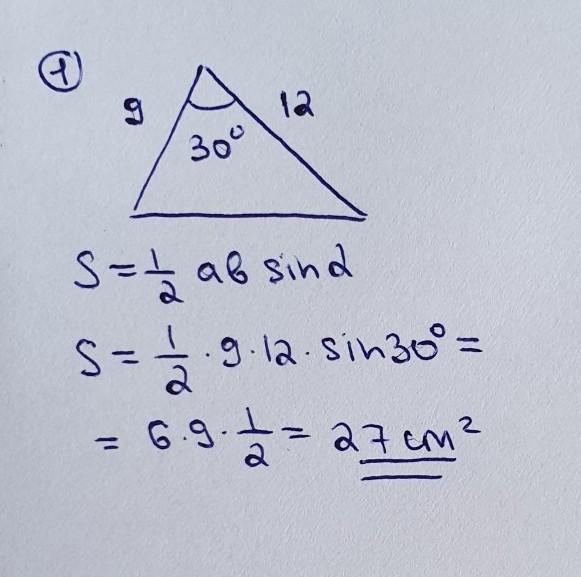 1
9
12
30°
S = 1/2 ab sinα
S = 1/2 · 9 · 12 · sin30° =
= 6 · 9 · 1/2 = 27 cm²